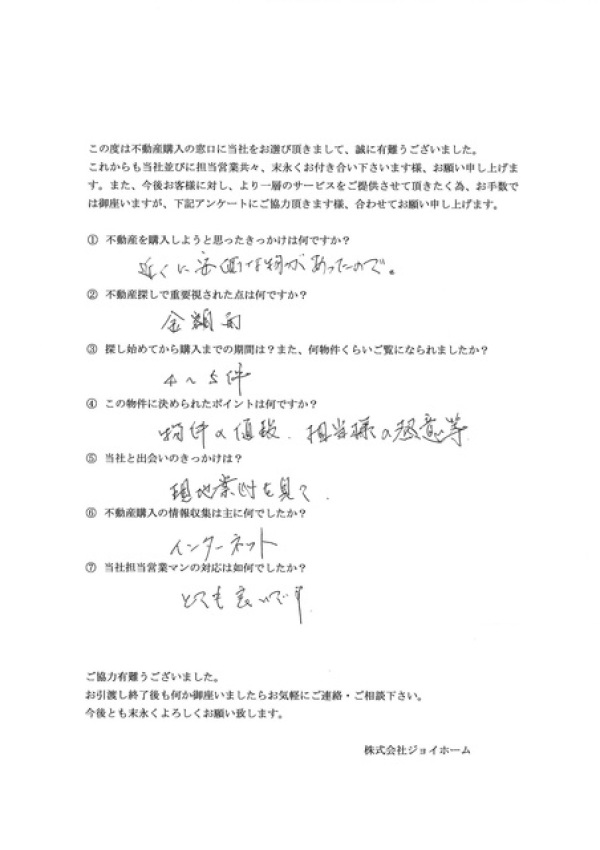 この度は不動産購入の窓口に当社をお選び頂きまして、誠に有難うございました。
これからも当社並びに担当営業共々、末永くお付き合い下さいます様、お願い申し上げま
す。また、今後お客様に対し、より一層のサービスをご提供させて頂きたく為、お手数で
は御座いますが、下記アンケートにご協力頂きます様、合わせてお願い申し上げます。
① 不動産を購入しようと思ったきっかけは何ですか？
近くに安価な物があったので。
② 不動産探しで重要視された点は何ですか？
金額面
③ 探し始めてから購入までの期間は？また、何物件くらいご覧になられましたか？
4～5件
④ この物件に決められたポイントは何ですか？
物件の値段、担当様の熱意等
⑤ 当社と出会いのきっかけは？
現地案内を見て.
⑥ 不動産購入の情報収集は主に何でしたか？
インターネット
⑦ 当社担当営業マンの対応は如何でしたか？
とても良いです
ご協力有難うございました。
お引渡し終了後も何か御座いましたらお気軽にご連絡・ご相談下さい。
今後とも末永くよろしくお願い致します。
株式会社ジョイホーム